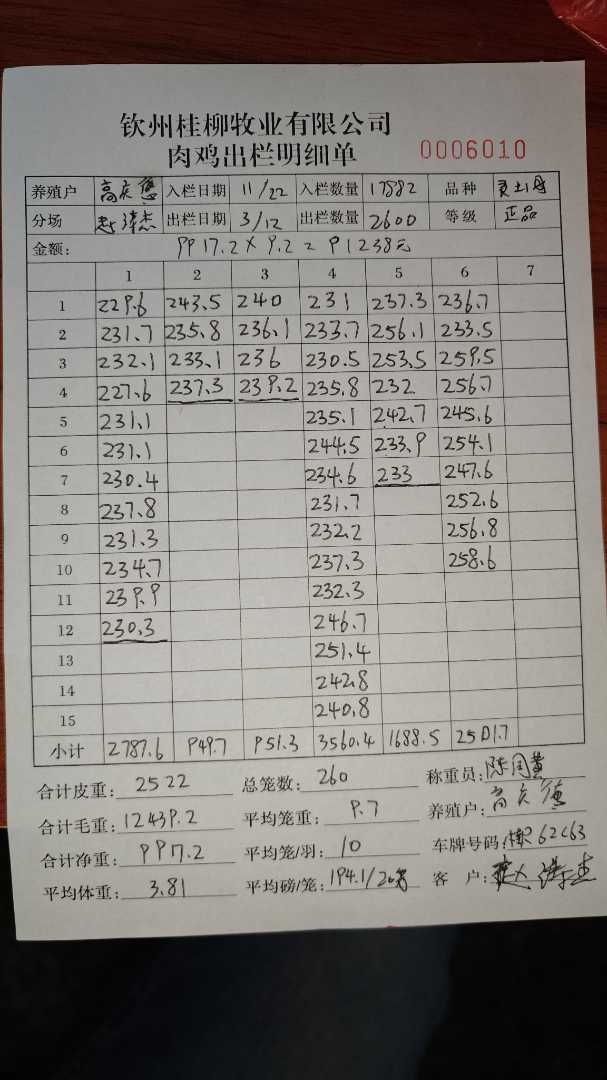 钦州桂柳牧业有限公司
肉鸡出栏明细单 0006010
养殖户 高庆德 入栏日期 11/22 入栏数量 17882 品种 灵土2号
分场 出栏日期 3/12 出栏数量 2600 等级 正品
金额: 9917.2×9.2=91238元
1 2 3 4 5 6 7
1 229.6 243.5 240 231 237.3 236.7
2 231.7 235.8 236.1 233.7 256.1 233.5
3 232.1 233.1 236 230.5 253.5 259.5
4 227.6 237.3 239.2 235.8 232 256.7
5 231.1 235.1 242.7 245.6
6 231.1 244.5 233.9 254.1
7 230.4 234.6 233 247.6
8 237.8 231.7 252.6
9 231.3 232.2 256.8
10 234.7 237.3 258.6
11 239.9 232.3
12 230.3 246.7
13 251.4
14 242.8
15 240.8
小计 2787.6 949.7 951.3 3560.4 1688.5 2501.7
合计皮重: 2522 总笼数: 260 称重员:
合计毛重: 12439.2 平均笼重: 9.7 养殖户: 高庆德
合计净重: 9917.2 平均笼/羽: 10 车牌号码: 62C63
平均体重: 3.81 平均磅/笼: 194.1/20 客 户: